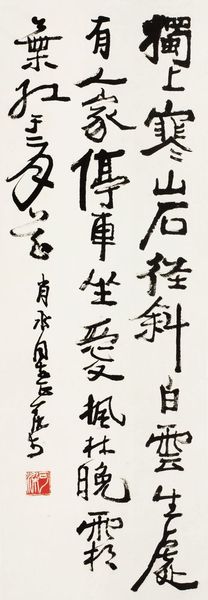 獨上寒山石径斜白雲生處
有人家停車坐愛楓林晚霜
葉红于二月花